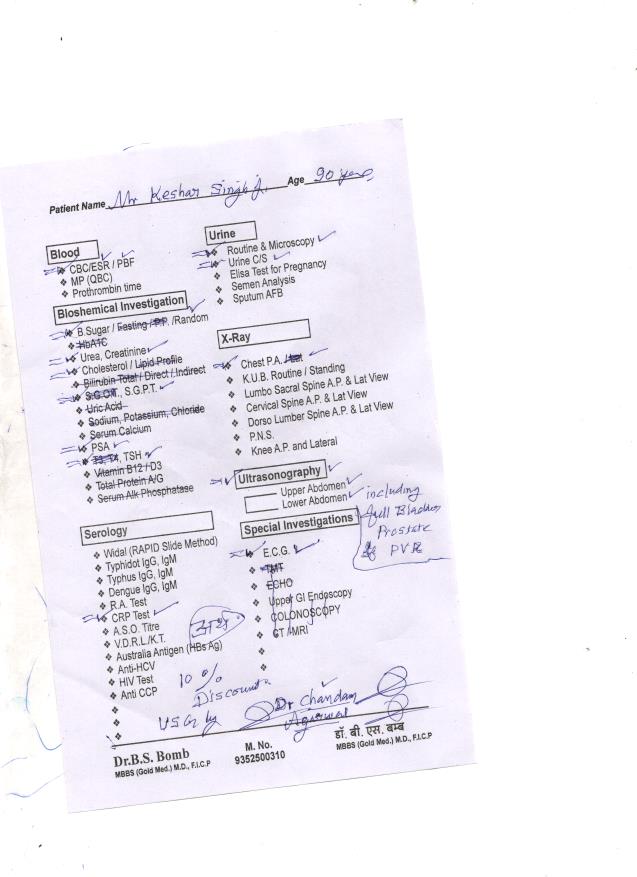 Patient Name Mr Keshar Singh ji Age 90 years
Blood
CBC/ESR / PBF
MP (QBC)
Prothrombin time
Bioshemical Investigation
B.Sugar / Fasting / P.P. /Random
HbA1C
Urea, Creatinine
Cholesterol / Lipid Profile
Bilirubin Total / Direct / Indirect
S.G.O.T., S.G.P.T.
Uric Acid
Sodium, Potassium, Chloride
Serum Calcium
PSA
T3, T4, TSH
Vitamin B12 / D3
Total Protein A/G
Serum Alk Phosphatase
Serology
Widal (RAPID Slide Method)
Typhidot IgG, IgM
Typhus IgG, IgM
Dengue IgG, IgM
R.A. Test
CRP Test
A.S.O. Titre
V.D.R.L./K.T.
Australia Antigen (HBs Ag)
Anti-HCV
HIV Test
Anti CCP
Urine
Routine & Microscopy
Urine C/S
Elisa Test for Pregnancy
Semen Analysis
Sputum AFB
X-Ray
Chest P.A. / Lat
K.U.B. Routine / Standing
Lumbo Sacral Spine A.P. & Lat View
Cervical Spine A.P. & Lat View
Dorso Lumber Spine A.P. & Lat View
P.N.S.
Knee A.P. and Lateral
Ultrasonography
Upper Abdomen
Lower Abdomen
including
full Bladder
Prostate
& PVR
Special Investigations
E.C.G.
TMT
ECHO
Upper GI Endoscopy
COLONOSCOPY
CT /MRI
10 %
Discount
USG by Dr Chandan
Agarwal
Dr.B.S. Bomb
MBBS (Gold Med.) M.D., F.I.C.P
M. No.
9352500310
डॉ. बी. एस. बम्ब
MBBS (Gold Med.) M.D., F.I.C.P